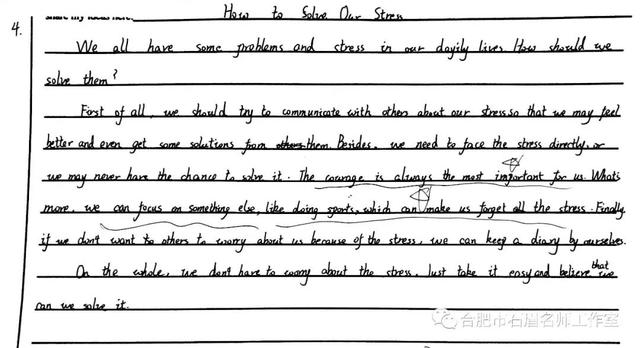 4.
share my ideas here.
How to Solve Our Stress
We all have some problems and stress in our dayily lives. How should we
solve them?
First of all, we should try to communicate with others about our stress so that we may feel
better and even get some solutions from them. Besides, we need to face the stress directly, or
we may never have the chance to solve it. The courage is always the most important for us. What's
more, we can focus on something else, like doing sports, which can make us forget all the stress. Finally,
if we don't want to others to worry about us because of the stress, we can keep a diary by ourselves.
On the whole, we don't have to worry about the stress. Just take it easy and believe that we
can we solve it.
合肥市石眉名师工作室